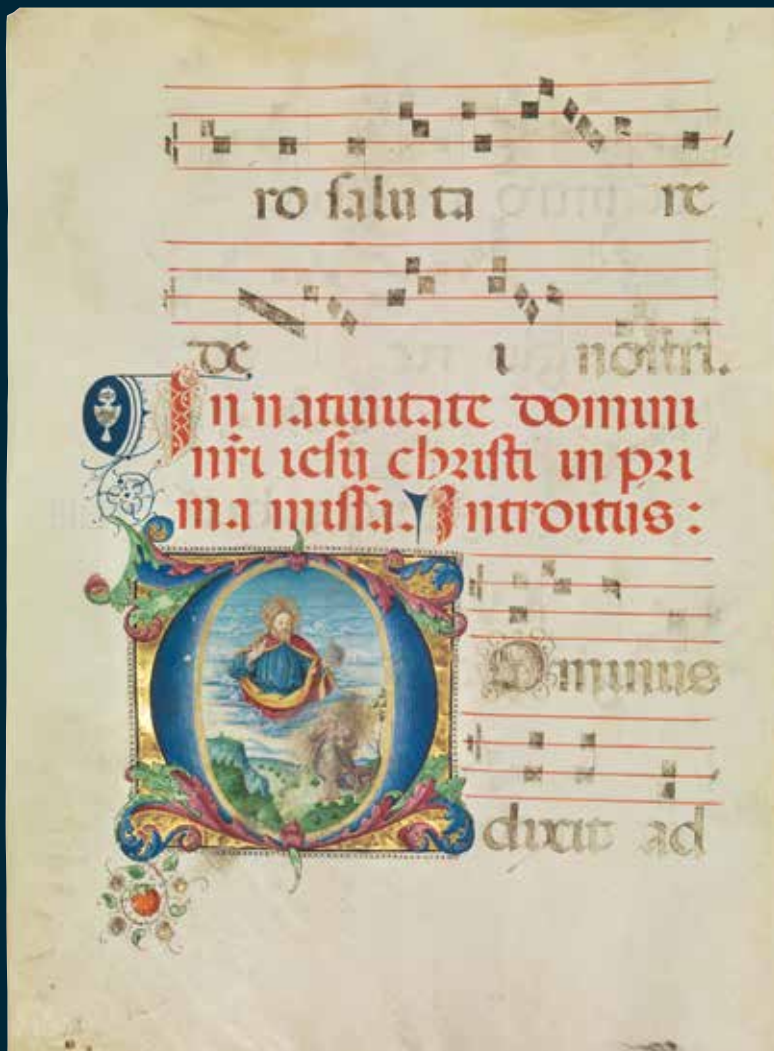 ro saluta re
de i nostri.
In natiuitate domini
nr̄i iesu christi in pri
ma missa. Introitus:
Dominus
dixit ad